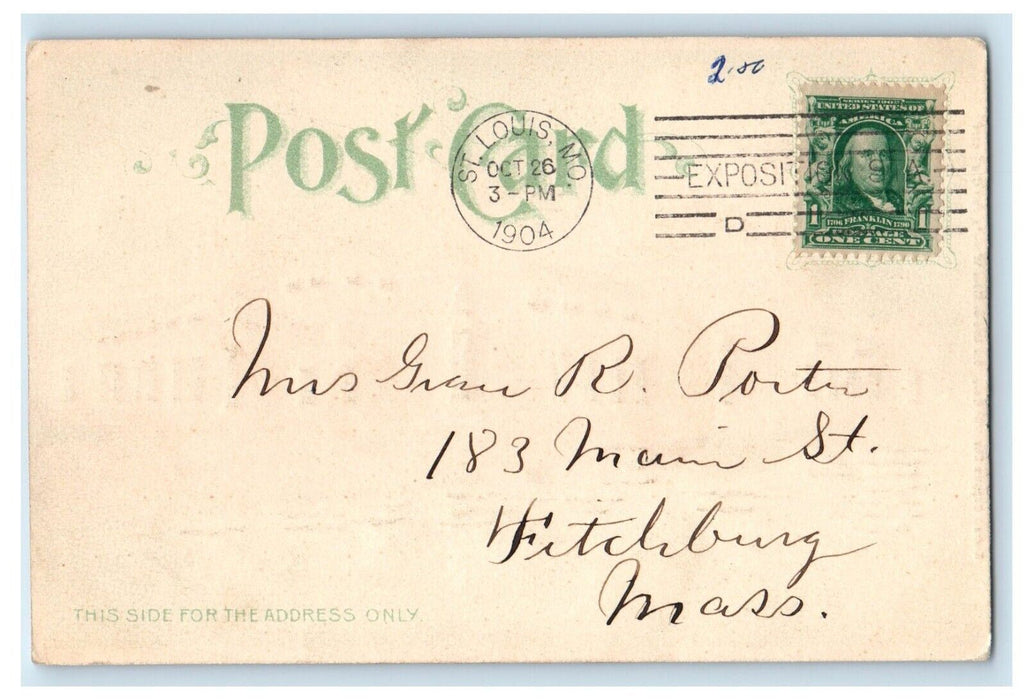 2.00
POST CARD
ST. LOUIS, MO.
OCT 26
3-PM
1904
EXPOSITION
D
SERIES 1902
UNITED STATES OF
AMERICA
1706 FRANKLIN 1790
1 POSTAGE 1
ONE CENT
Mrs Grace R. Porter
183 Main St.
Fitchburg
Mass.
THIS SIDE FOR THE ADDRESS ONLY.